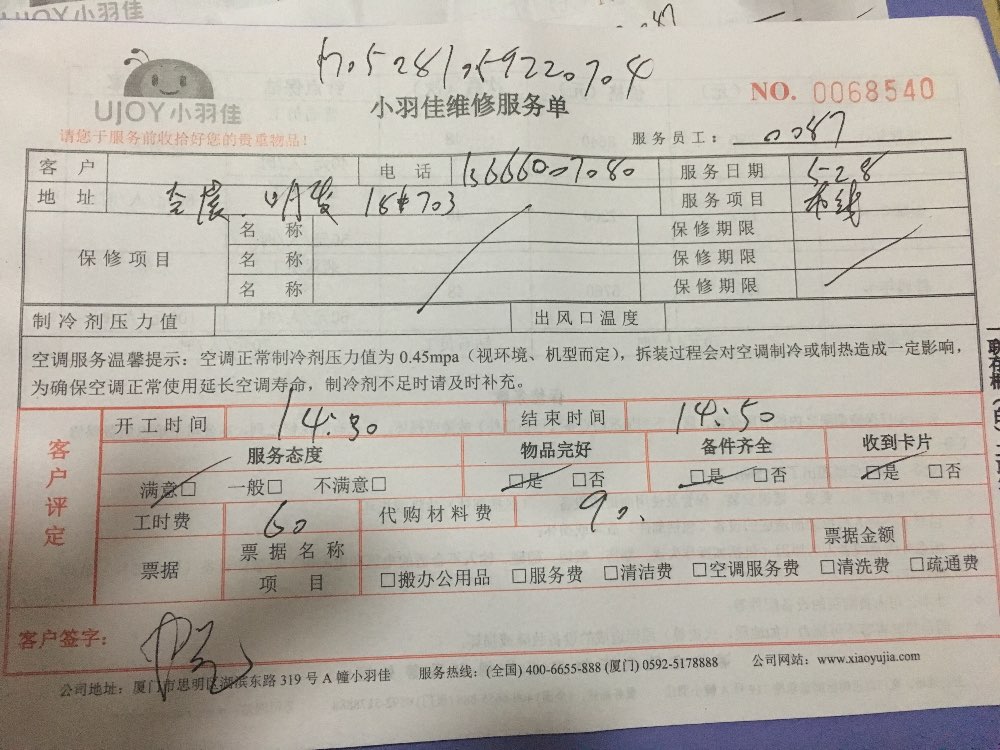 UJOY小羽佳
1705281059220704
UJOY小羽佳
小羽佳维修服务单
NO. 0068540
请您于服务前收拾好您的贵重物品！
服务员工： 0087
客 户 电 话 13666007080 服务日期 5-28
地 址 明发 18#703 服务项目 布线
保修项目 名 称 保修期限
名 称 保修期限
名 称 保修期限
制冷剂压力值 出风口温度
空调服务温馨提示：空调正常制冷剂压力值为 0.45mpa（视环境、机型而定），拆装过程会对空调制冷或制热造成一定影响，
为确保空调正常使用延长空调寿命，制冷剂不足时请及时补充。
客户评定
开工时间 14:30 结束时间 14:50
服务态度 物品完好 备件齐全 收到卡片
满意□ 一般□ 不满意□ □是 □否 □是 □否 □是 □否
工时费 60 代购材料费 90.
票据 票据名称 票据金额
项 目 □搬办公用品 □服务费 □清洁费 □空调服务费 □清洗费 □疏通费
客户签字：
公司地址：厦门市思明区湖滨东路 319 号 A 幢小羽佳 服务热线：(全国) 400-6655-888 (厦门) 0592-5178888 公司网站：www.xiaoyujia.com